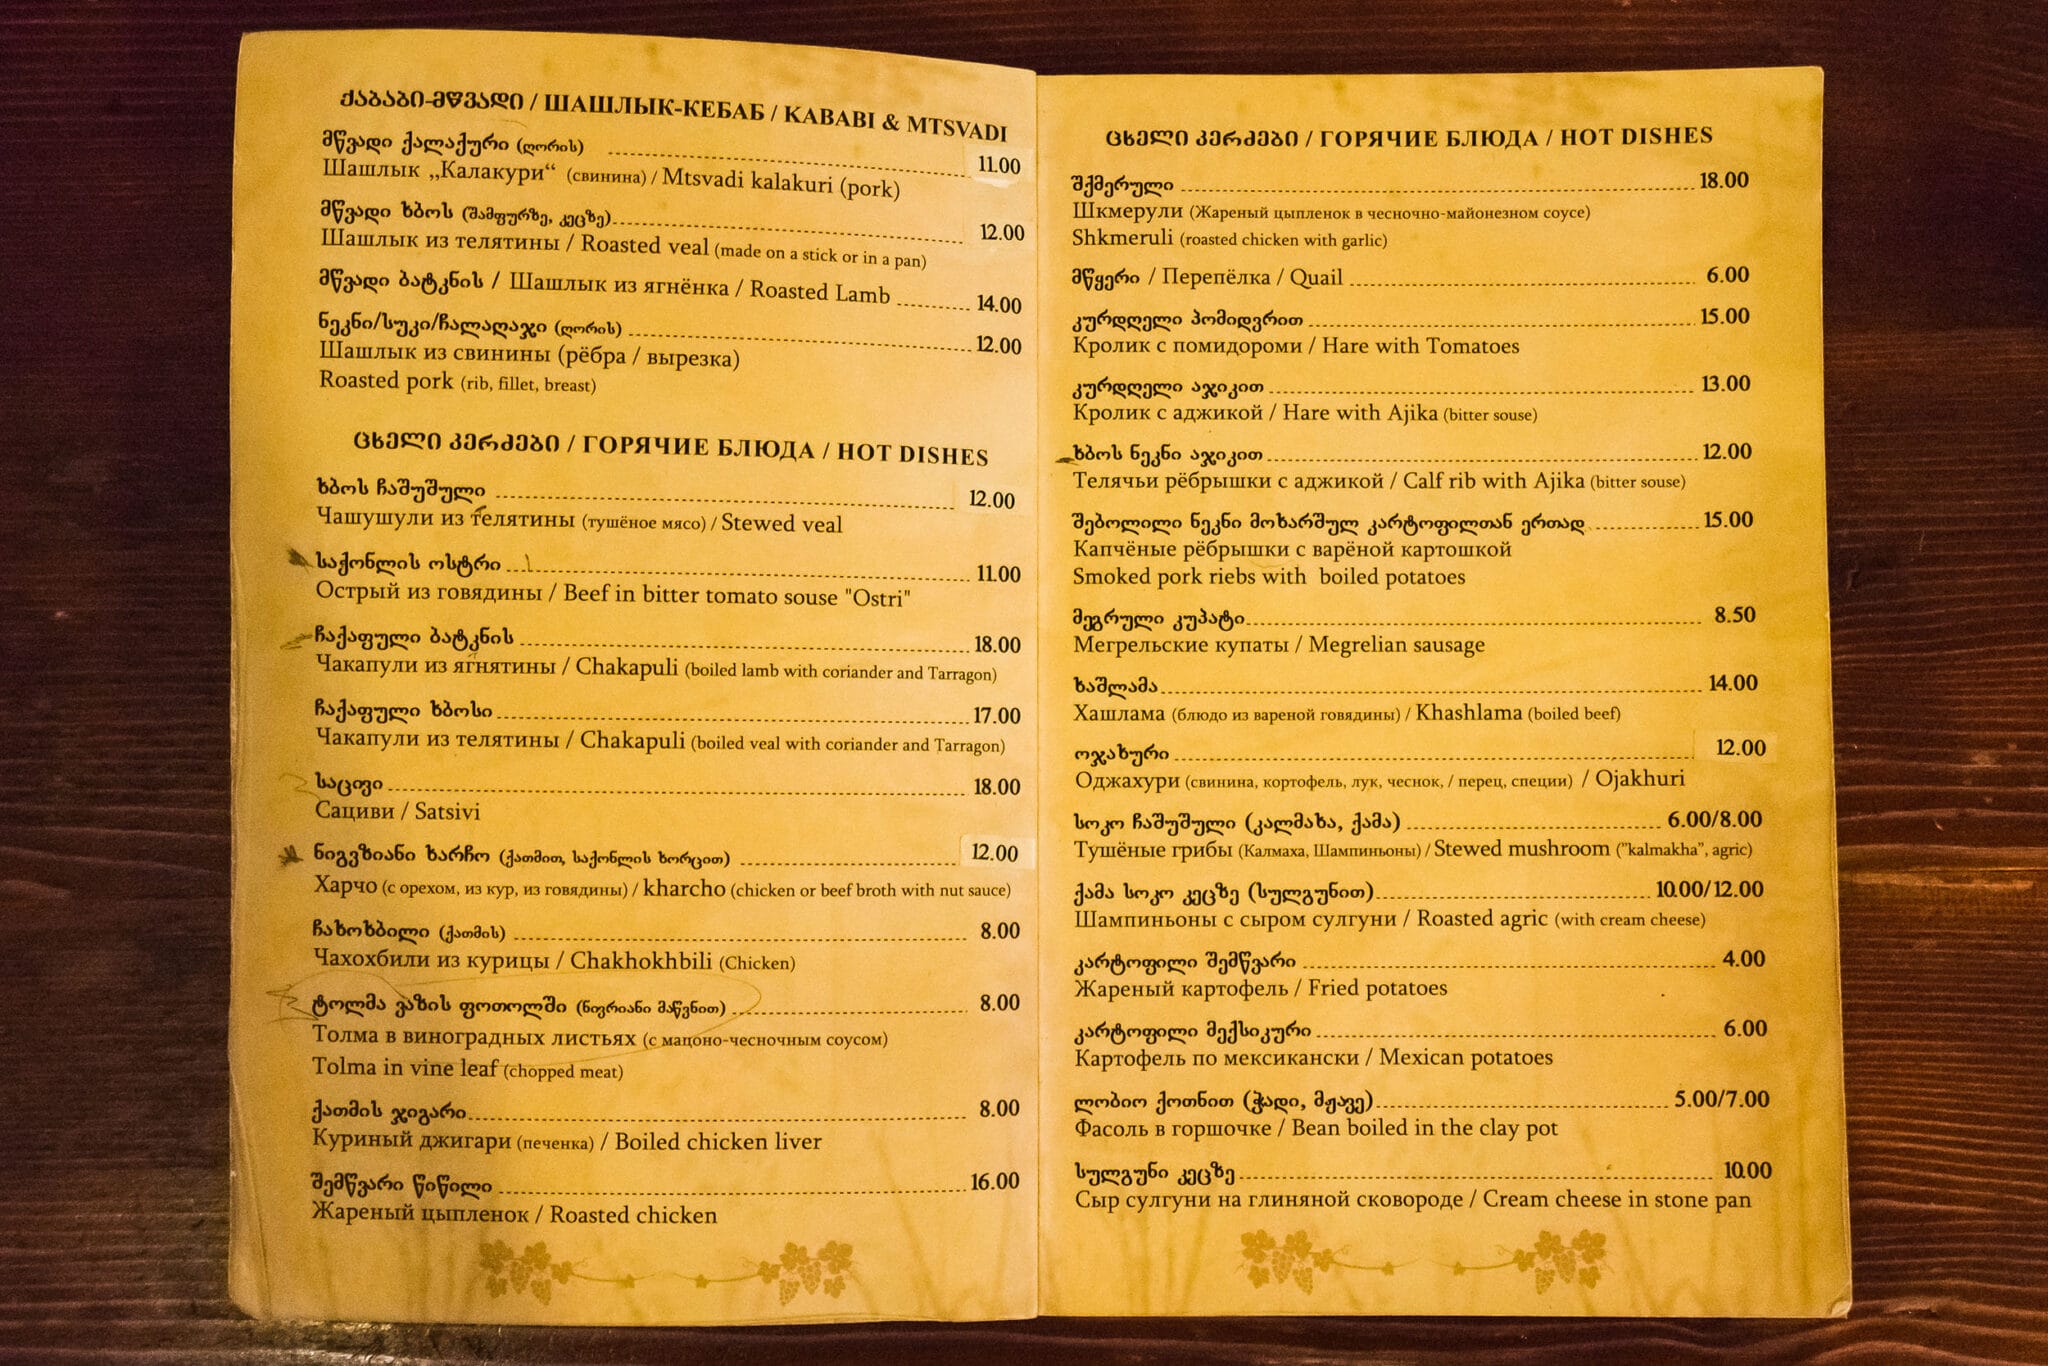 ქაბაბი-მწვადი / ШАШЛЫК-КЕБАБ / KABABI & MTSVADI
მწვადი ქალაქური (ღორის) 11.00
Шашлык „Калакури“ (свинина) / Mtsvadi kalakuri (pork)
მწვადი ხბოს (შამფურზე, კეცზე) 12.00
Шашлык из телятины / Roasted veal (made on a stick or in a pan)
მწვადი ბატკნის / Шашлык из ягнёнка / Roasted Lamb 14.00
ნეკნი/სუკი/ჩალაღაჯი (ღორის) 12.00
Шашлык из свинины (рёбра / вырезка)
Roasted pork (rib, fillet, breast)
ცხელი კერძები / ГОРЯЧИЕ БЛЮДА / HOT DISHES
ხბოს ჩაშუშული 12.00
Чашушули из телятины (тушёное мясо) / Stewed veal
საქონლის ოსტრი 11.00
Острый из говядины / Beef in bitter tomato souse "Ostri"
ჩაქაფული ბატკნის 18.00
Чакапули из ягнятины / Chakapuli (boiled lamb with coriander and Tarragon)
ჩაქაფული ხბოსი 17.00
Чакапули из телятины / Chakapuli (boiled veal with coriander and Tarragon)
საცივი 18.00
Сациви / Satsivi
ნიგვზიანი ხარჩო (ქათმით, საქონლის ხორცით) 12.00
Харчо (с орехом, из кур, из говядины) / kharcho (chicken or beef broth with nut sauce)
ჩახოხბილი (ქათმის) 8.00
Чахохбили из курицы / Chakhokhbili (Chicken)
ტოლმა ვაზის ფოთოლში (ნივრიანი მაწვნით) 8.00
Толма в виноградных листьях (с мацоно-чесночным соусом)
Tolma in vine leaf (chopped meat)
ქათმის ჯიგარი 8.00
Куриный джигари (печенка) / Boiled chicken liver
შემწვარი წიწილი 16.00
Жареный цыпленок / Roasted chicken
ცხელი კერძები / ГОРЯЧИЕ БЛЮДА / HOT DISHES
შქმერული 18.00
Шкмерули (Жареный цыпленок в чесночно-майонезном соусе)
Shkmeruli (roasted chicken with garlic)
მწყერი / Перепёлка / Quail 6.00
კურდღელი პომიდვრით 15.00
Кролик с помидороми / Hare with Tomatoes
კურდღელი აჯიკით 13.00
Кролик с аджикой / Hare with Ajika (bitter souse)
ხბოს ნეკნი აჯიკით 12.00
Телячьи рёбрышки с аджикой / Calf rib with Ajika (bitter souse)
შებოლილი ნეკნი მოხარშულ კარტოფილთან ერთად 15.00
Капчёные рёбрышки с варёной картошкой
Smoked pork riebs with boiled potatoes
მეგრული კუპატი 8.50
Мегрельские купаты / Megrelian sausage
ხაშლამა 14.00
Хашлама (блюдо из вареной говядины) / Khashlama (boiled beef)
ოჯახური 12.00
Оджахури (свинина, кортофель, лук, чеснок, / перец, специи) / Ojakhuri
სოკო ჩაშუშული (კალმახა, ქამა) 6.00/8.00
Тушёные грибы (Калмаха, Шампиньоны) / Stewed mushroom ("kalmakha", agric)
ქამა სოკო კეცზე (სულგუნით) 10.00/12.00
Шампиньоны с сыром сулгуни / Roasted agric (with cream cheese)
კარტოფილი შემწვარი 4.00
Жареный картофель / Fried potatoes
კარტოფილი მექსიკური 6.00
Картофель по мексикански / Mexican potatoes
ლობიო ქოთნით (ჭადი, მჟავე) 5.00/7.00
Фасоль в горшочке / Bean boiled in the clay pot
სულგუნი კეცზე 10.00
Сыр сулгуни на глиняной сковороде / Cream cheese in stone pan